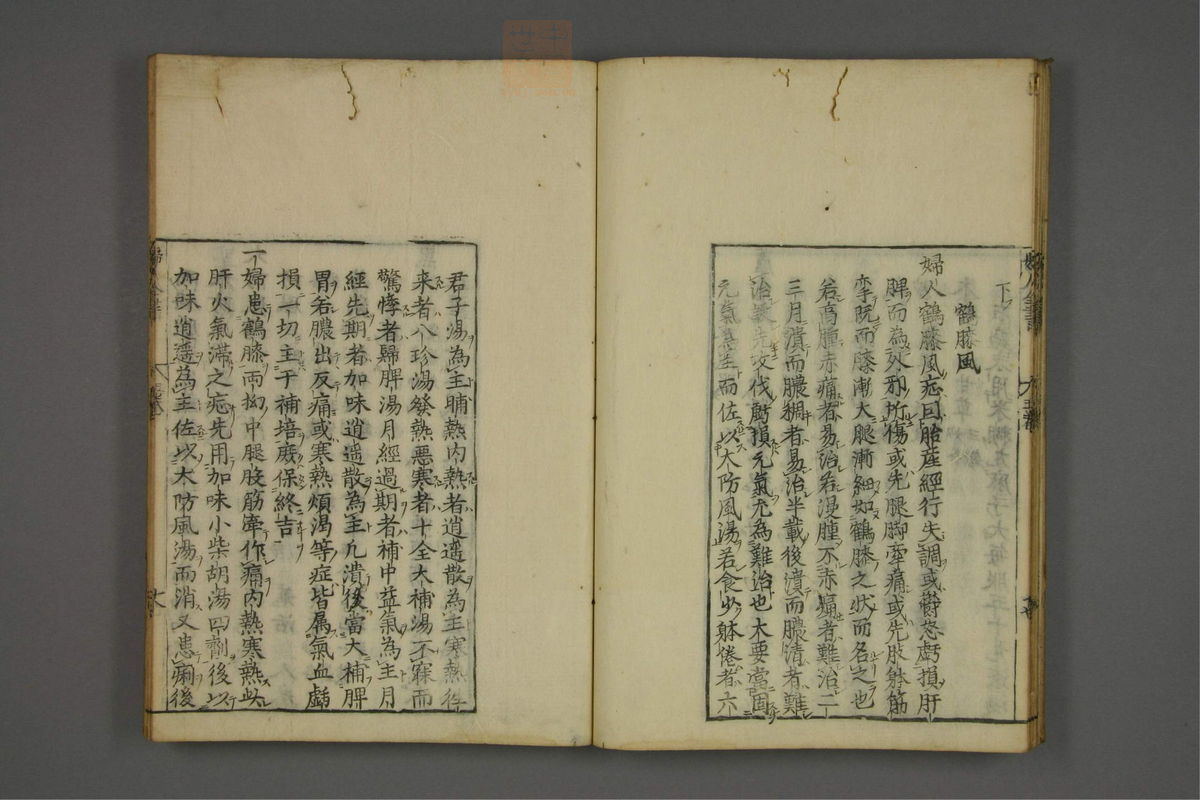 下
鶴膝風
婦人鶴膝風症因胎産經行失調或鬱怒虧損肝
脾而為外邪所傷或先腿脚牽痛或先肢躰筋
攣既而膝漸大腿漸細如鶴膝之状而名之也
若高腫赤痛者易治若漫腫不赤痛者難治二
三月潰而膿稠者易治半載後潰而膿清者難
治誤先攻伐虧損元氣尤為難治也大要當固
元氣為主而佐以大防風湯若食少躰倦者六
君子湯為主晡熱内熱者逍遥散為主寒熱徃
来者八珍湯發熱惡寒者十全大補湯不寐而
驚悸者歸脾湯月經過期者補中益氣為主月
經先期者加味逍遥散為主凡潰後當大補脾
胃若膿出反痛或寒熱煩渇等症皆属氣血虧
損一切主于補培庶保終吉
一婦患鶴膝両拗中腿股筋牽作痛内熱寒熱此
肝火氣滞之症先用加味小柴胡湯四劑後以
加味逍遥為主佐以大防風湯而消又患痢後